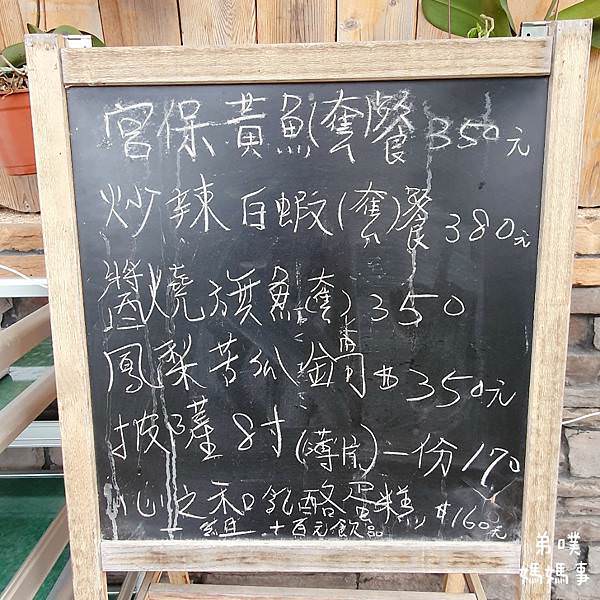 宮保黃魚(套)餐 350元
炒辣白蝦(套)餐 380元
醬燒旗魚(套) 350
鳳梨苦瓜鍋 $350元
披薩 8寸(薄片)一份 170
心之和乳酪蛋糕 $160元
百元飲品
弟噗
媽媽事